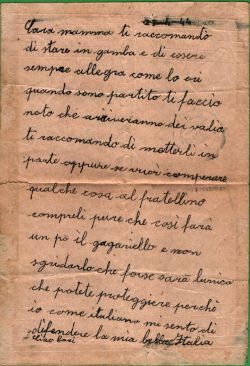 Cara mamma ti raccomando
di stare in gamba e di essere
sempre allegra come lo eri
quando sono partito ti faccio
noto che arriveranno dei valia
ti raccomando di metterli in
parte oppure se vuoi comperare
qualche cosa al fratellino
compreli pure che così farà
un pò il gagariello e non
sgridarlo che forse sarà l'unico
che potete proteggiere perchè
io come italiano mi sento di
difendere la mia bella Italia
Ciao Baci